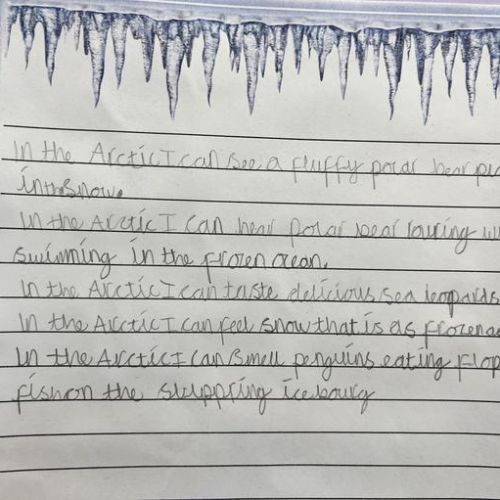 In the Arctic I can see a fluffy polar bear pl
in the snow.
In the Arctic I can hear polar bear louring w
swimming in the frozen oceon.
In the Arctic I can taste delicious sea leopards
In the Arctic I can feel snow that is as frozen a
In the Arctic I can smell penguins eating flop
fish on the slippring icebourg